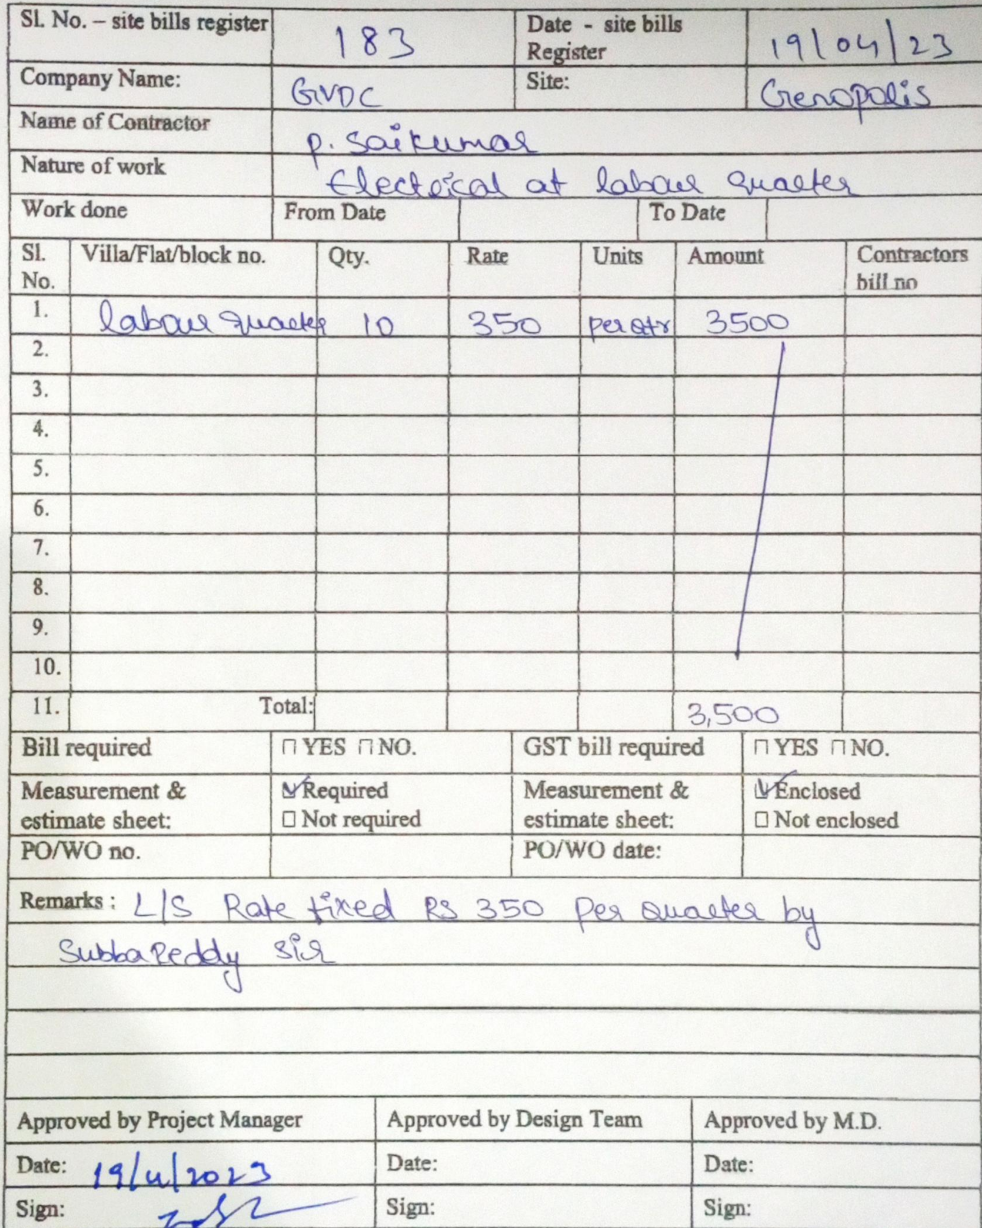 Sl. No. – site bills register 183 Date - site bills Register 19/04/23
Company Name: GVDC Site: Genopolis
Name of Contractor P. Saikumar
Nature of work Electrical at labour Quarter
Work done From Date To Date
Sl. No. Villa/Flat/block no. Qty. Rate Units Amount Contractors bill no
1. labour Quarter 10 350 per qtr 3500
2.
3.
4.
5.
6.
7.
8.
9.
10.
11. Total: 3,500
Bill required YES NO. GST bill required YES NO.
Measurement & estimate sheet: Required Not required Measurement & estimate sheet: Enclosed Not enclosed
PO/WO no. PO/WO date:
Remarks : L/S Rate fixed RS 350 Per Quarter by
Subba Reddy Sir
Approved by Project Manager Approved by Design Team Approved by M.D.
Date: 19/4/2023 Date: Date:
Sign: Sign: Sign: